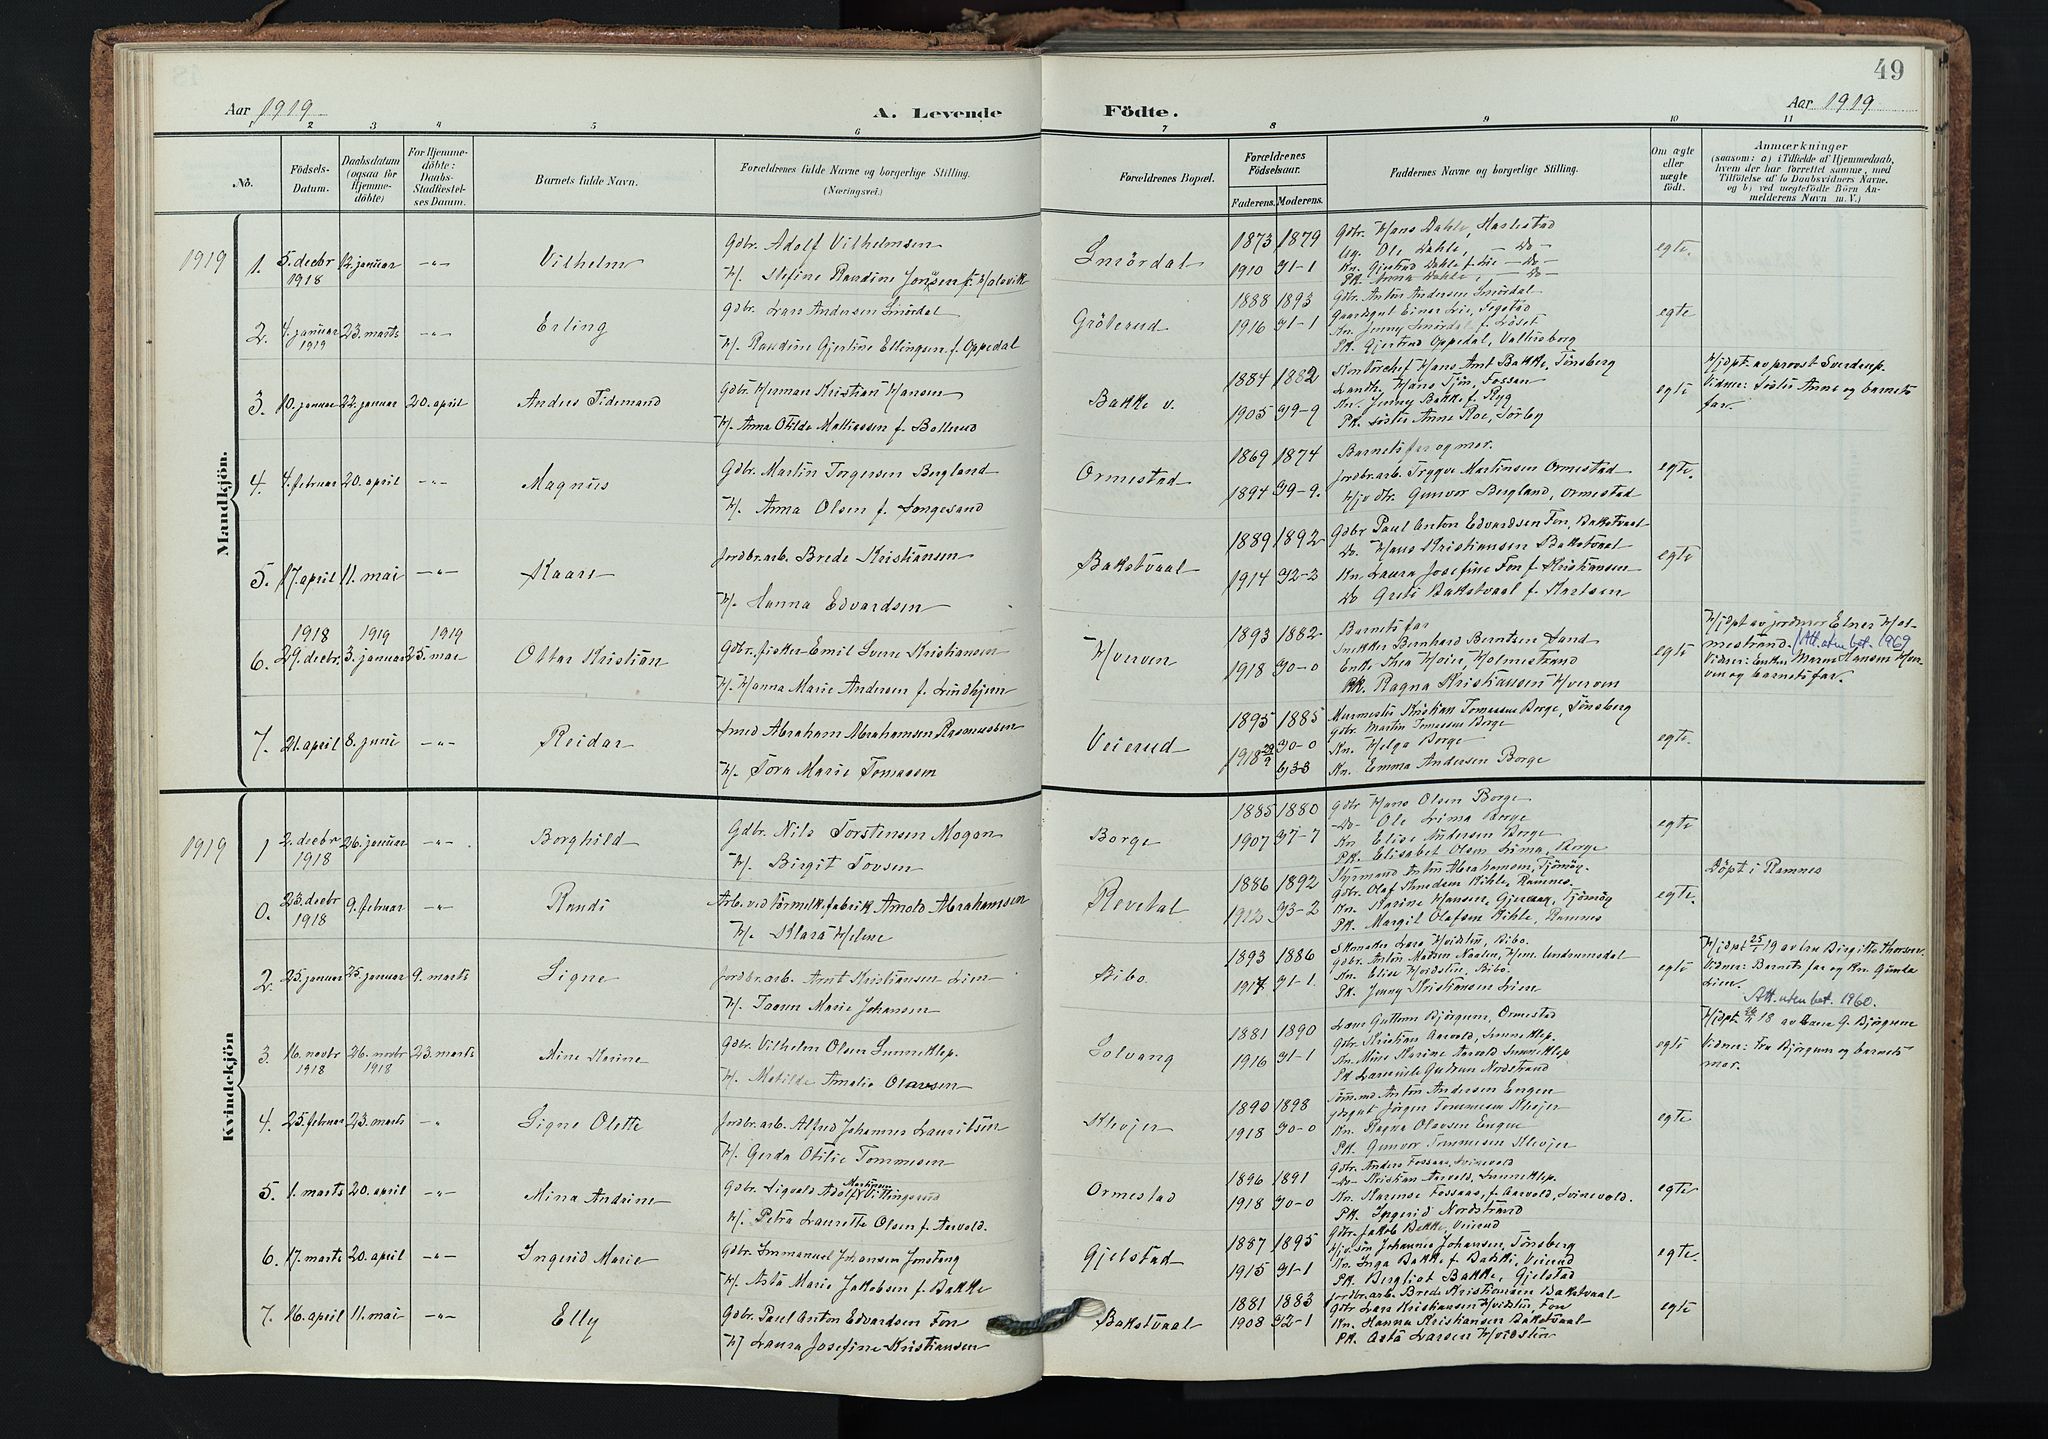 49
Aar 1919
A. Levende
Födte.
Aar 1919
1 2 3 4 5 6 7 8 9 10 11
No.
Födsels-
Datum.
Daabsdatum
(ogsaa for
Hjemme-
döbte)
For Hjemme-
döbte:
Daabs-
Stadfæstel-
ses Datum.
Barnets fulde Navn.
Forældrenes fulde Navne og borgerlige Stilling.
(Næringsvei.)
Forældrenes Bopæl.
Forældrenes
Födselsaar.
Faderens. Moderens.
Faddernes Navne og borgerlige Stilling.
Om ægte
eller
uægte
födt.
Anmærkninger
(saasom: a) i Tilfælde af Hjemmedaab,
hvem der har forrettet samme, med
Tilföielse af to Daabsvidners Navne.
og b) ved uægtefödte Börn An-
melderens Navn m. V.)
Mandkjön.
1919 1. 5. decbr 1918 12. januar -"- Vilhelm
Gdbr. Adolf Vilhelmsen
H/. Stefine Randine Jonsen f. Holtvik
Smördal 1873 1879 1910 31-1
Gdbr. Hans Dahle, Harlestad
Ug. Ole Dahle, - Do -
Kn. Gjertrud Dahle f. Lie - Do -
PK. Anna Dahle, - Do -
egte.
2. 4. januar 1919 23. marts -"- Erling
Gdbr. Lars Andersen Smördal
H/. Randine Gjertine Ellingsen f. Oppedal
Gröterud 1888 1893 1916 31-1
Gdbr. Anton Andersen Smördal
Gaardsgut Einar Lie, Fegstad
Kn. Jenny Smördal f. Löset
PK. Gjertrud Oppedal, Vallersberg
egte
3. 10. januar 22. januar 20. april Anders Tidemand
Gdbr. Herman Kristian Hansen
H/. Anna Otilde Mathiassen f. Bollerud
Bakke v. 1884 1882 1905 39-9
Kontorchef Hans Arnt Bakke, Tönsberg
Landh. Hans Tjön, Fossan
Kn. Jenny Bakke f. Ryg
PK. söster Anne Roe, Sörby
egte
Hjdpt. av provst Sverdrup.
Vidner: Söster Anne og barnets
far.
4. 4. februar 20. april -"- Magnus
Gdbr. Martin Torgersen Bergland
H/. Anna Olsen f. Songesand
Ormestad 1869 1874 1894 39-9.
Barnets far og mor.
Jordbr.arb. Trygve Martinsen Ormestad
Hjv. dtr. Gunvor Bergland, Ormestad
egte.
5. 17. april 11. mai -"- Kaare
Jordbr.arb. Brede Kristiansen
H/. Hanna Edvardsen
Bakstvaal 1889 1892 1914 32-2
Gdbr Paul Anton Edvardsen Fon, Bakstvaal
Do Hans Kristiansen Bakstvaal
Kn. Laura Josefine Fon f. Kristiansen
Do Grete Bakstvaal f. Karlsen
egte
6. 1918 29. decbr. 1919 3. januar 1919 25. mai Ottar Kristian
Gdbr. fisker Emil Sverre Kristiansen
H/. Hanna Marie Andersen f. Lindhjem
Hverven 1893 1882 1918 30-0
Barnets far
Snekker Bernhard Berntsen Sand
Enke Thea Höier, Holmestrand
PK. Ragna Kristiansen Hverven
egte
Hjdpt av jordmor Elnes Hol-
mestrand. Att. uten bet. 1969
Vidner: Enke Maren Hansen Hver-
ven og barnets far.
7. 21. april 8. juni -"- Reidar
Smed Abraham Abrahamsen Rasmussen
H/. Tora Marie Tomassen
Veierud 1895 1885 1918 29/9 30-0 b, 3-3
Murmester Kristian Tomassen Borge, Tönsberg
Gdbr. Martin Tomassen Borge
Kn. Helga Borge
Kn. Emma Andersen Borge
egte.
Kvindekjön
1919 1 2. decbr 1918 26. januar -"- Borghild
Gdbr. Nils Torstensen Mogan
H/. Birgit Tovsen
Borge 1885 1880 1907 37-7
Gdbr Hans Olsen Borge
Do Ole Lima Borge
Kn Elise Andersen Borge
PK. Elisabet Olsen Lima, Borge
egte
0. 23. decbr 1918 9. februar -"- Randi
Arb. ved törmelk.fabrik Arnold Abrahamsen
H/. Klara Helene
Revetal 1886 1892 1912 33-2
Styrmand Anton Abrahamsen, Tjömöy.
Gdbr. Olaf Knudsen Kihle, Ramnes.
Kn. Karine Hansen, Tjömöy
PK. Margit Olafsen Kihle, Ramnes
egte.
Döpt i Ramnes
2. 25. januar 25. januar 9. marts Signe
Jordbr.arb. Arnt Kristiansen Lien
H/. Taomi Marie Johansen
Bibo 1893 1886 1917 31-1.
Skomaker Lars Hvidsten, Bibo.
Gdbr. Anton Madsen Naalen, Hem Undrumsdal
Kn. Elise Hvidsten, Bibo
PK. Jenny Kristiansen Lien
egte
Hjdpt 25/1 19 av fru Birgitte Thorsen.
Vidner: Barnets far og Kn. Gunda
Lien.
Att. uten bet. 1960.
3. 16. novbr 1918 26. novbr 1918 23. marts Mine Karine
Gdbr. Vilhelm Olsen Sunneklep.
H/. Matilde Amalie Olavsen
Solvang 1881 1890 1916 31-1
Læge Guttorm Björgum, Ormestad
Gdbr. Kristian Aarvold, Sunneklep
Kn. Mine Karine Aarvold Sunneklep
PK Gudrun Nordstrand
egte
Hjdpt 26/11 18 av G. Björgum
Vidner: Fru Björgum og barnets
mor.
4. 25. februar 23. marts -"- Signe Olette
Jordbr.arb. Alfred Johannes Lauritsen
H/. Gerda Otilie Tommesen
Klevjer 1890 1898 1918 30-0
Tömmermd Anton Andersen Engen
Jörgen Tommesen Klevjer
Kn. Ragna Olavsen Engen
PK. Gunvor Tommesen Klevjer
egte
5. 1. marts 20. april -"- Mina Andrine
Gdbr. Sigvald Adolf Martinsen Vittingsrud
H/. Petra Laurette Olsen f. Aarvold.
Ormestad 1896 1891 1918 30-0
Gdbr. Anders Fossaas, Svinevold
Do Kristian Aarvold, Sunneklep.
Kn. Karense Fossaas, f. Aarvold, Svinevold.
PK. Ingerid Nordstrand
egte
6. 17. marts 20. april -"- Ingerid Marie
Gdbr. Immanuel Johansen Jonstang
H/. Asta Marie Jakobsen f. Bakke
Gjelstad 1887 1895 1915 31-1
Gdbr. Jakob Bakke, Veierud
Hjv. sön Johannes Johansen, Tönsberg
Kn. Inga Bakke f. Bakke, Veierud
PK. Bergliot Bakke, Gjelstad
egte.
7. 16. april 11. mai -"- Elly
Gdbr. Paul Anton Edvardsen Fon
H/ Laura Josefine Kristiansen
Bakstvaal 1881 1883 1908 32-1
Jordbr.arb. Brede Kristiansen Bakstvaal
Gdbr Lars Kristiansen Hvidsten, Fon
Kn. Hanna Kristiansen Bakstvaal
PK. Asta Larsen Hvidsten
egte